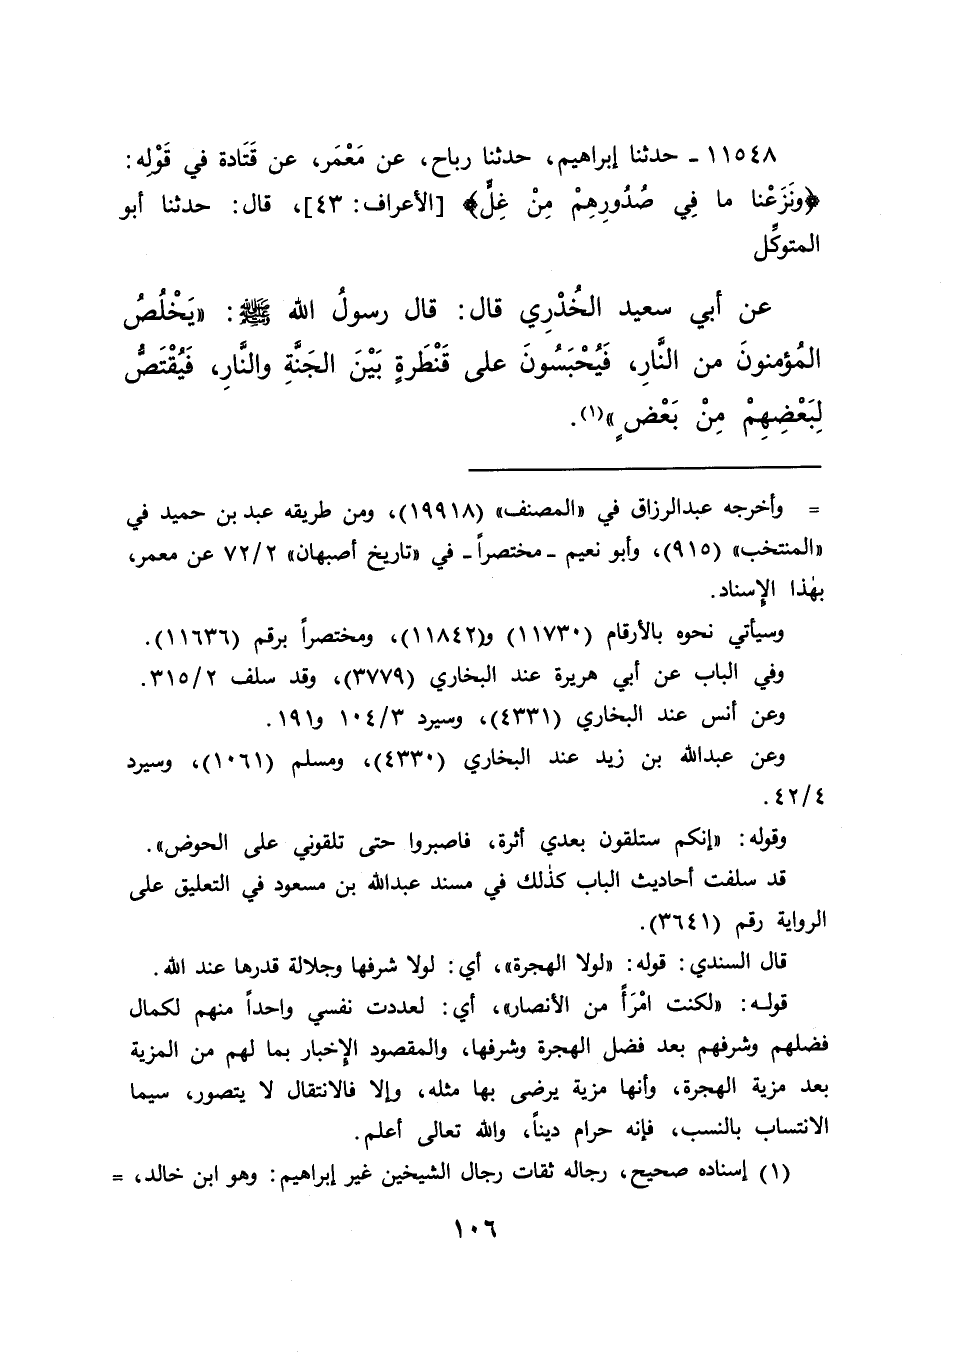 ١١٥٤٨ ـ حدثنا إبراهيم، حدثنا رباح، عن مَعْمَر، عن قَتَادة في قَوْلِه:
﴿ونَزَعْنا ما فِي صُدُورِهِمْ مِنْ غِلٍّ﴾ [الأعراف: ٤٣]، قال: حدثنا أبو
المتوكِّل
عن أبي سعيد الخُدْرِي قال: قال رسولُ الله ﷺ: «يَخْلُصُ
المُؤمنونَ من النَّارِ، فَيُحْبَسُونَ على قَنْطَرةٍ بَيْنَ الجَنَّةِ والنَّارِ، فَيُقْتَصُّ
لِبَعْضِهِمْ مِنْ بَعْضٍ»(١).
= وأخرجه عبدالرزاق في «المصنف» (١٩٩١٨)، ومن طريقه عبد بن حميد في
«المنتخب» (٩١٥)، وأبو نعيم ـ مختصراً ـ في «تاريخ أصبهان» ٧٢/٢ عن معمر،
بهٰذا الإِسناد.
وسيأتي نحوه بالأرقام (١١٧٣٠) و(١١٨٤٢)، ومختصراً برقم (١١٦٣٦).
وفي الباب عن أبي هريرة عند البخاري (٣٧٧٩)، وقد سلف ٣١٥/٢.
وعن أنس عند البخاري (٤٣٣١)، وسيرد ١٠٤/٣ و١٩١.
وعن عبدالله بن زيد عند البخاري (٤٣٣٠)، ومسلم (١٠٦١)، وسيرد
٤٢/٤.
وقوله: «إنكم ستلقون بعدي أثرة، فاصبروا حتى تلقوني على الحوض».
قد سلفت أحاديث الباب كذٰلك في مسند عبدالله بن مسعود في التعليق على
الرواية رقم (٣٦٤١).
قال السندي: قوله: «لولا الهجرة»، أي: لولا شرفها وجلالة قدرها عند الله.
قولـه: «لكنت امْرَأً من الأنصار»، أي: لعددت نفسي واحداً منهم لكمال
فضلهم وشرفهم بعد فضل الهجرة وشرفها، والمقصود الإِخبار بما لهم من المزية
بعد مزية الهجرة، وأنها مزية يرضى بها مثله، وإلا فالانتقال لا يتصور، سيما
الانتساب بالنسب، فإنه حرام ديناً، والله تعالى أعلم.
(١) إسناده صحيح، رجاله ثقات رجال الشيخين غير إبراهيم: وهو ابن خالد، =
١٠٦